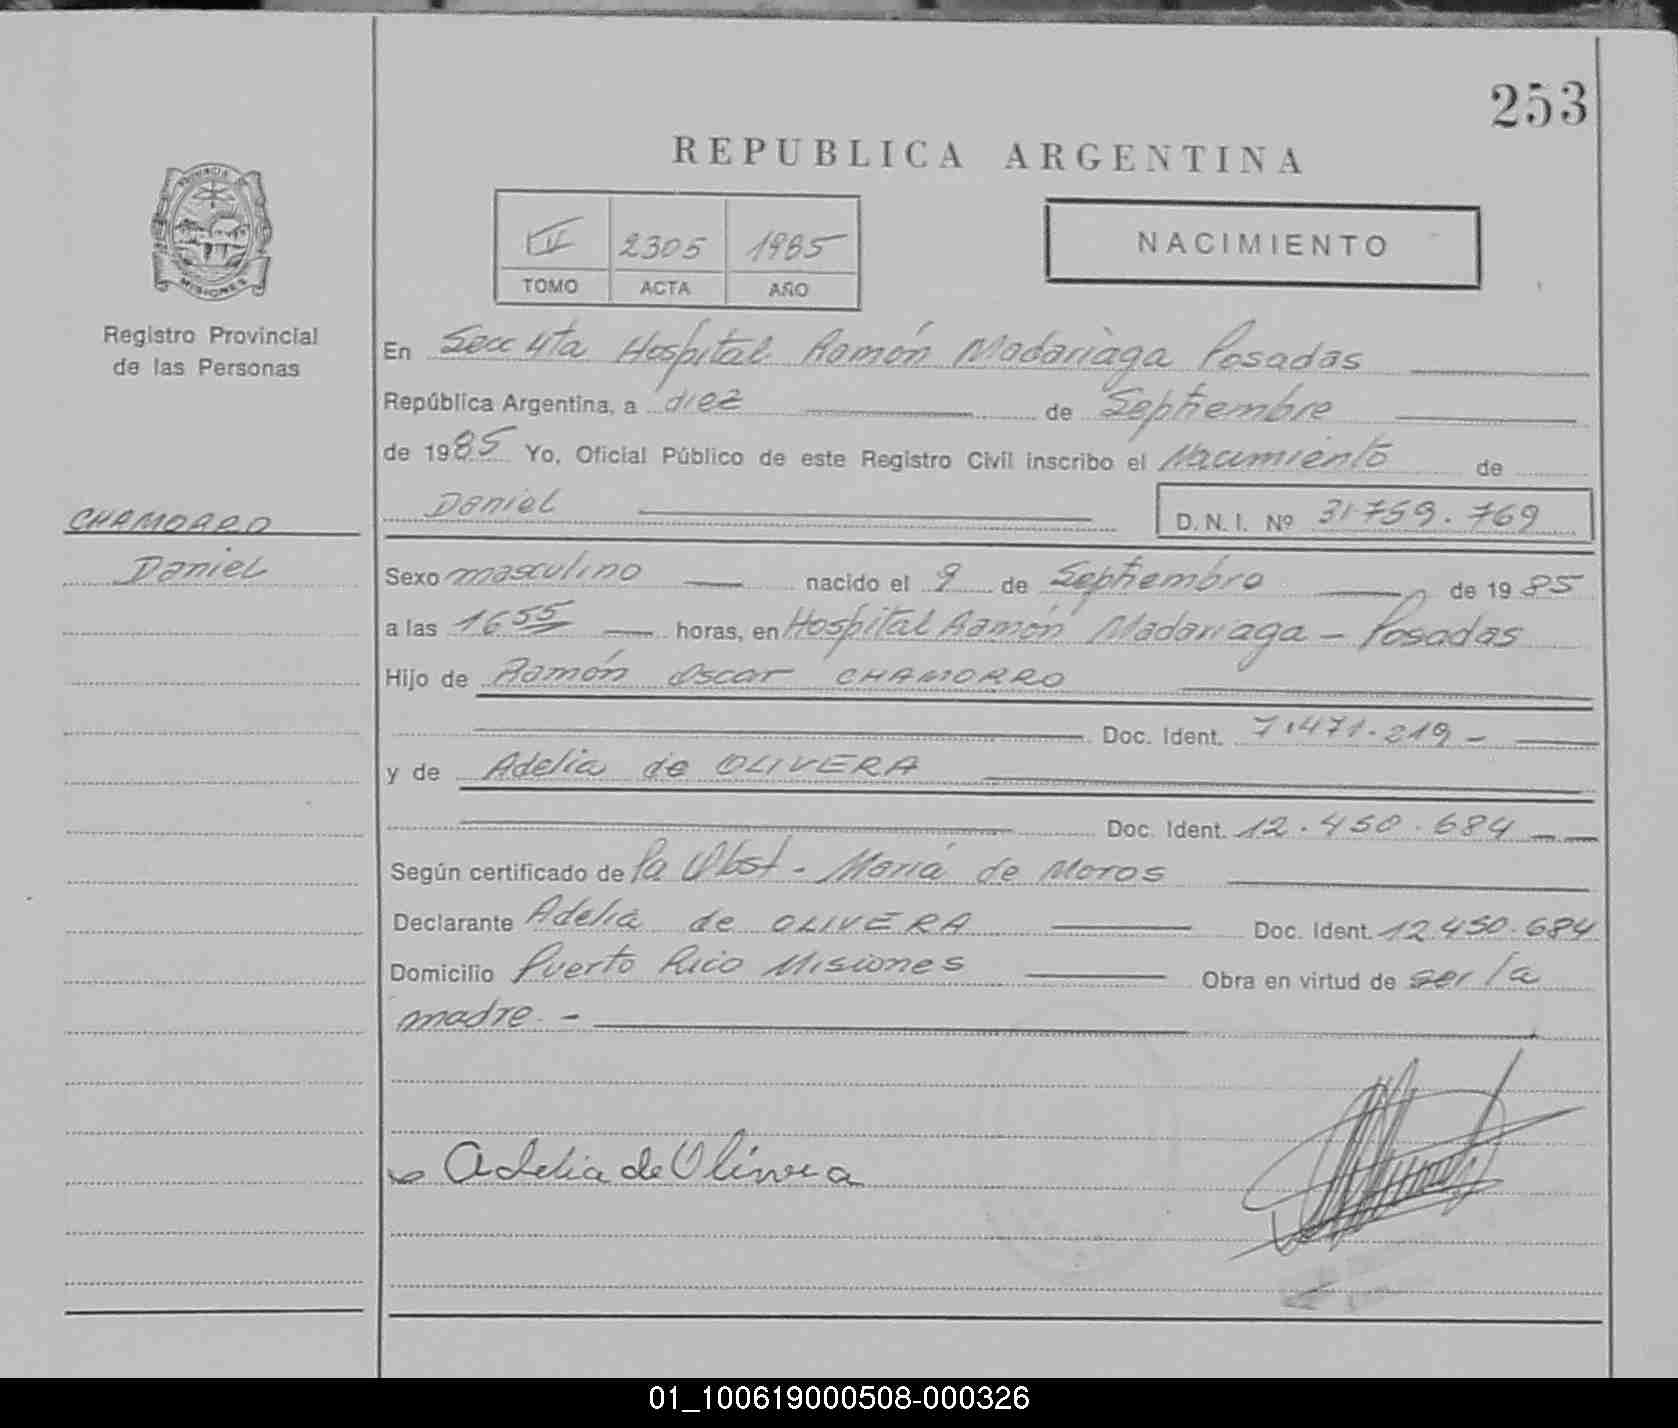 253
REPUBLICA ARGENTINA
PROVINCIA DE
MISIONES
Registro Provincial
de las Personas
2305 1985
TOMO ACTA AÑO
NACIMIENTO
En Secc 4ta Hospital Ramón Madariaga Posadas
República Argentina, a diez de Septiembre
de 1985 Yo, Oficial Público de este Registro Civil inscribo el Nacimiento de
Daniel D. N. I. Nº 31759.769
CHAMORRO
Daniel
Sexo masculino nacido el 9 de Septiembre de 1985
a las 16 55 horas, en Hospital Ramón Madariaga - Posadas
Hijo de Ramón Oscar CHAMORRO
Doc. Ident. 7.471.219 -
y de Adelia de OLIVERA
Doc. Ident. 12.450.684
Según certificado de la Obst - María de Moros
Declarante Adelia de OLIVERA Doc. Ident. 12.450.684
Domicilio Puerto Rico Misiones Obra en virtud de ser la
madre. -
Adelia de Olivera
01_100619000508-000326